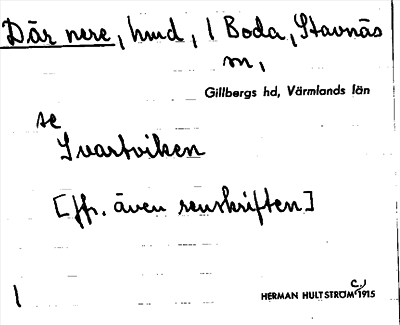 Där nere, hmd, 1 Boda, Stavnäs
sn,
Gillbergs hd, Värmlands län
se
Svartviken
[Jfr. även renskriften]
1
HERMAN HULTSTRÖM 1915